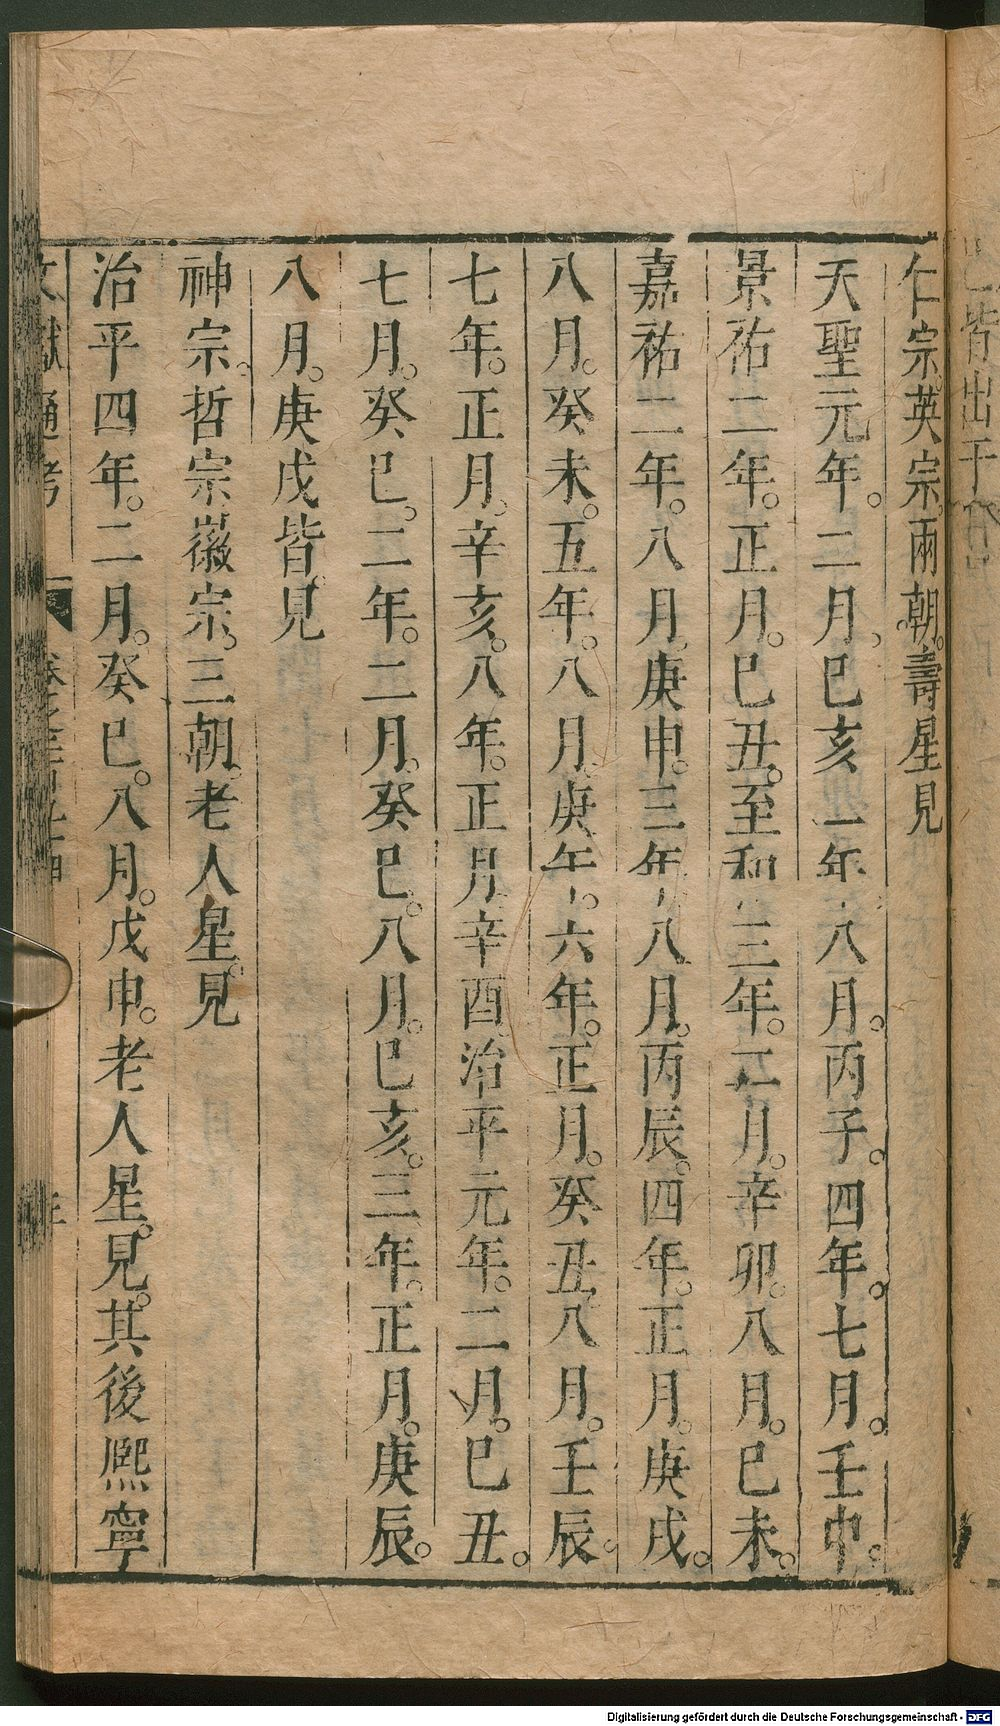 仁宗英宗兩朝壽星見
天聖元年。二月。巳亥一年八月。丙子。四年。七月。壬申。
景祐二年。正月。巳丑。至和三年。二月。辛卯。八月。巳未。
嘉祐二年。八月。庚申。三年八月。丙辰。四年。正月。庚戌。
八月。癸未。五年。八月。庚午。六年。正月。癸丑八月。壬辰。
七年。正月。辛亥。八年。正月辛酉。治平元年。二月。巳丑。
七月。癸巳。二年。二月。癸巳。八月。巳亥。三年。正月。庚辰。
八月。庚戌皆見
神宗。哲宗徽宗。三朝。老人星。見
治平四年。二月。癸巳。八月。戊申。老人星。見。其後熙寧
文獻通考
Digitalisierung gefördert durch die Deutsche Forschungsgemeinschaft - DFG